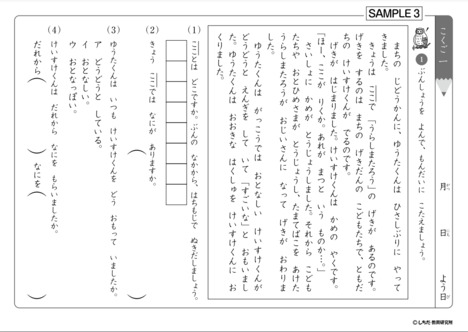 SAMPLE 3
こくご 1
月 日 よう日
1 ぶんしょうを よんで、もんだいに こたえましょう。
まちの じどうかんに、ゆうたくんは ひさしぶりに やって
きました。
きょうは ここで 「うらしまたろう」の げきが あるのです。
げきを するのは まちの げきだんの こどもたちで、ともだ
ちの けいすけくんが でるのです。
げきが はじまりました。けいすけくんは かめの やくです。
「はー、ここが りくか。あれが まつと いう ものか…。」
さいしょに かめが とうじょうしました。それから こども
たちや おとひめさまが とうじょうし、たまてばこを あけた
うらしまたろうが おじいさんに なって げきが おわりま
した。
ゆうたくんは がっこうでは おとなしい けいすけくんが
どうどうと えんぎを して いて 「すごいな」と おもいまし
た。ゆうたくんは おおきな はくしゅを けいすけくんに お
くりました。
(1) ここ とは どこですか。ぶんの なかから、はちもじで
ぬきだしましょう。
(2) きょう ここでは なにが ありますか。
( )
(3) ゆうたくんは いつも けいすけくんを どう おもって いましたか。
ア どうどうと している。
イ おとなしい。
ウ おとなっぽい。
( )
(4) けいすけくんは だれから なにを もらいましたか。
だれから( ) なにを( )
©しちだ・教育研究所